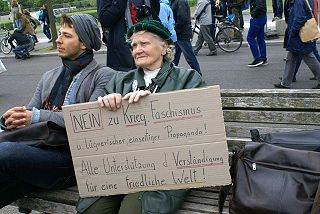 NEIN zu Krieg, Faschismus
u. lügnerischer einseitiger Propaganda!
Alle Unterstützung d. Verständigung
für eine friedliche Welt!